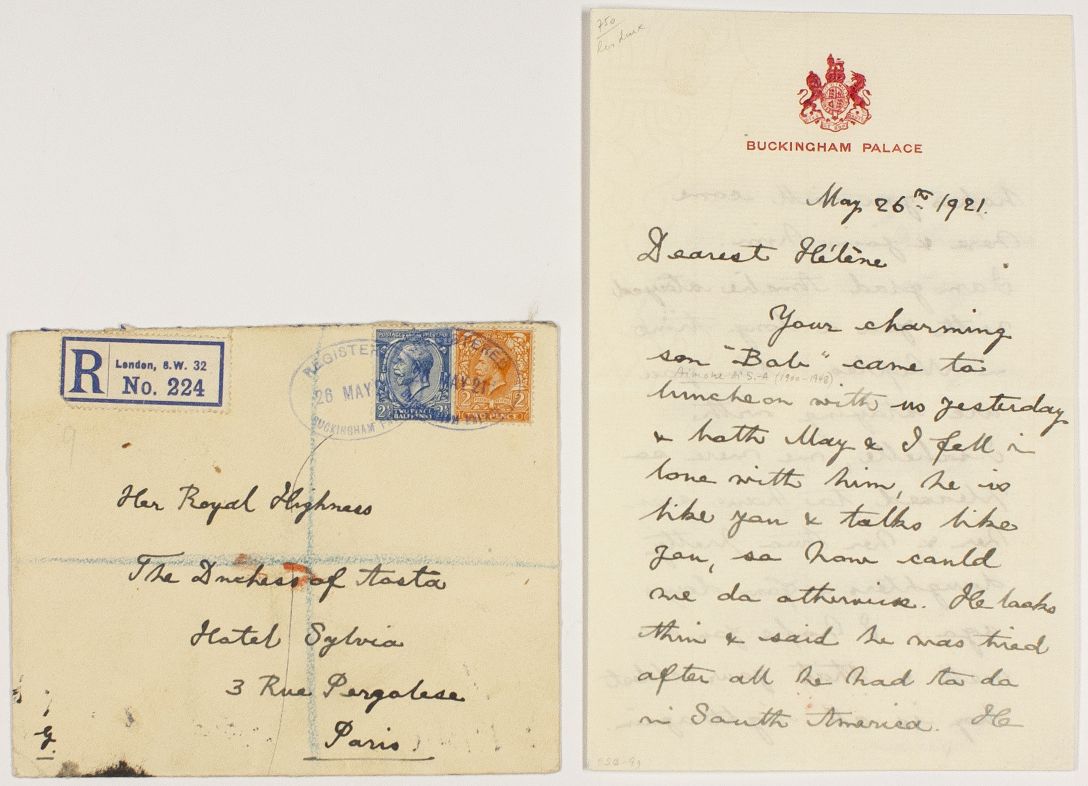 R
London, S.W. 32
No. 224
REGISTERED
26 MAY 21
BUCKINGHAM PALACE
POSTAGE REVENUE
TWO PENCE
HALFPENNY
2
2
TWOPENCE
Her Royal Highness
The Duchess of Aosta
Hotel Sylvia
3 Rue Pergolese
Paris.
G.
750
BUCKINGHAM PALACE
May 26th 1921.
Dearest Hélène
Your charming
son "Bob" came to
Aimone di S.-A (1900-1948)
luncheon with us yesterday
& both May & I fell in
love with him, he is
like you & talks like
you, so how could
we do otherwise. He looks
thin & said he was tired
after all he had to do
in South America. He